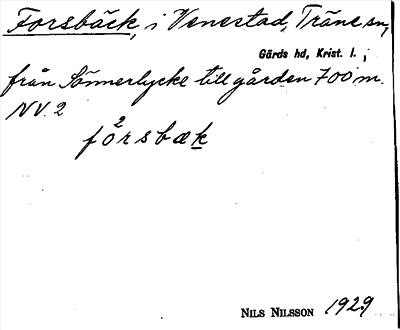 Forsbäck, i Venestad, Träne sn,
Gärds hd, Krist. l. ;
från Sönnerlycke till gården 700 m.
NV. 2
2
forsbæk
NILS NILSSON 1929